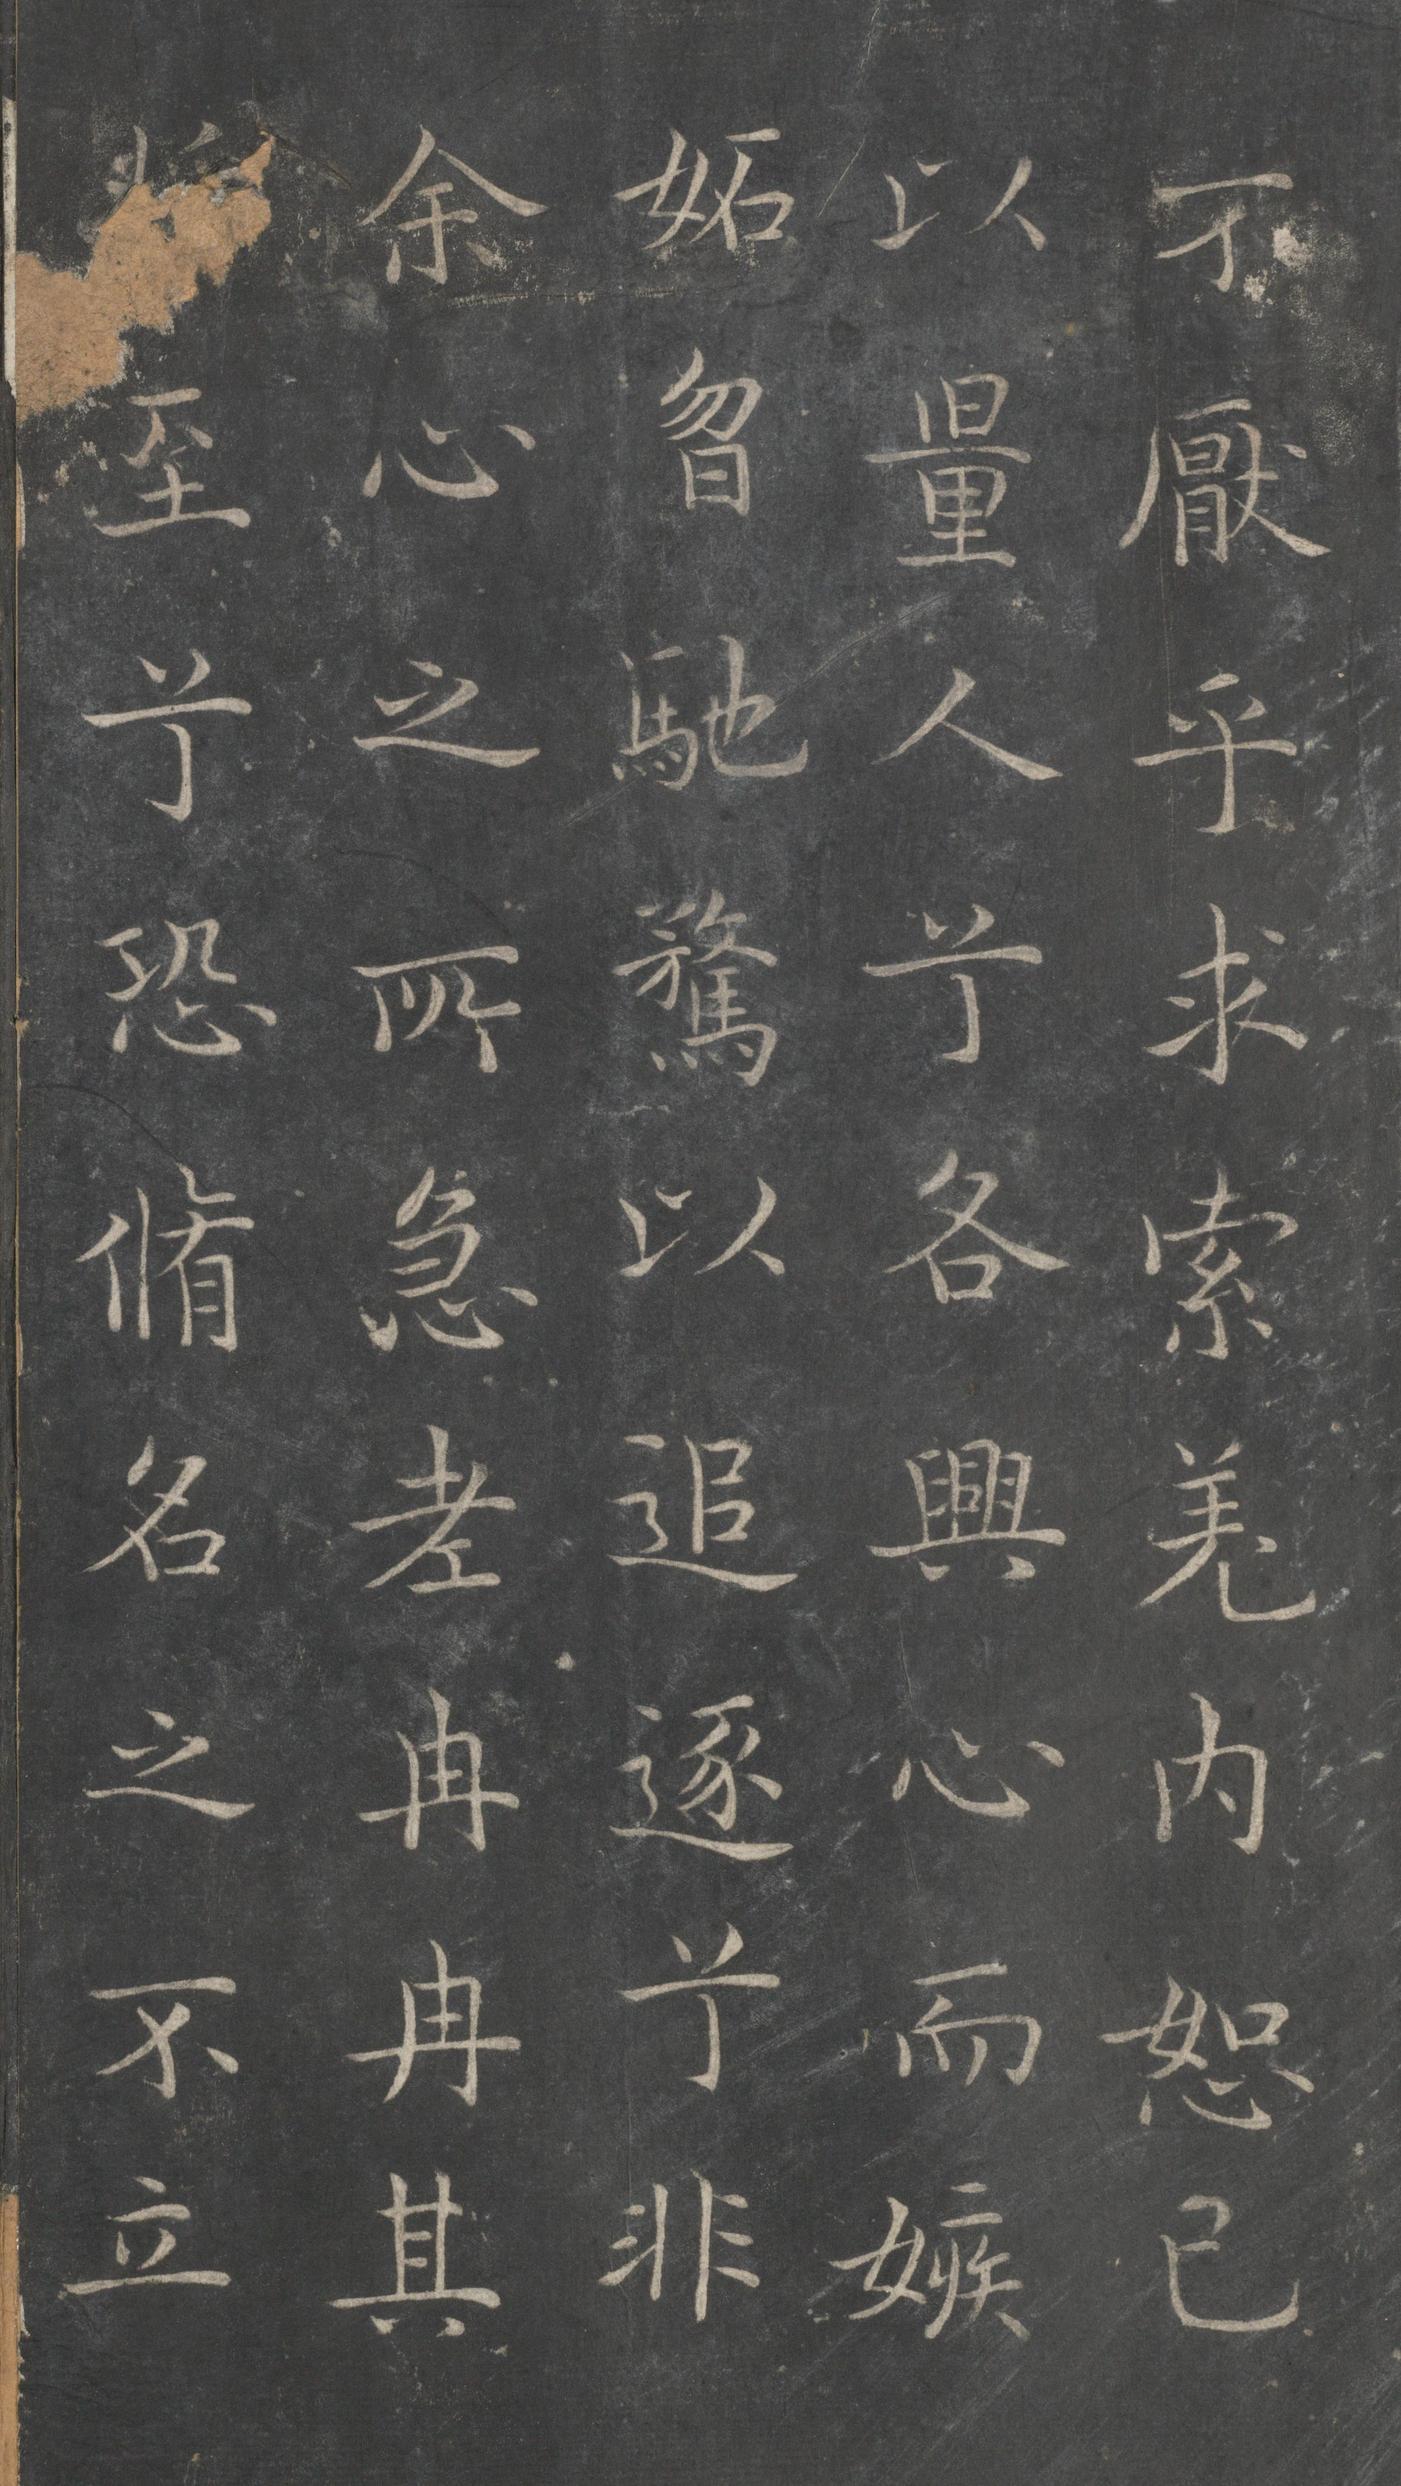 不厭乎求索羌内恕已
以量人兮各興心而嫉
妬曶馳騖以追逐兮非
余心之所急老冉冉其
至兮恐脩名之不立